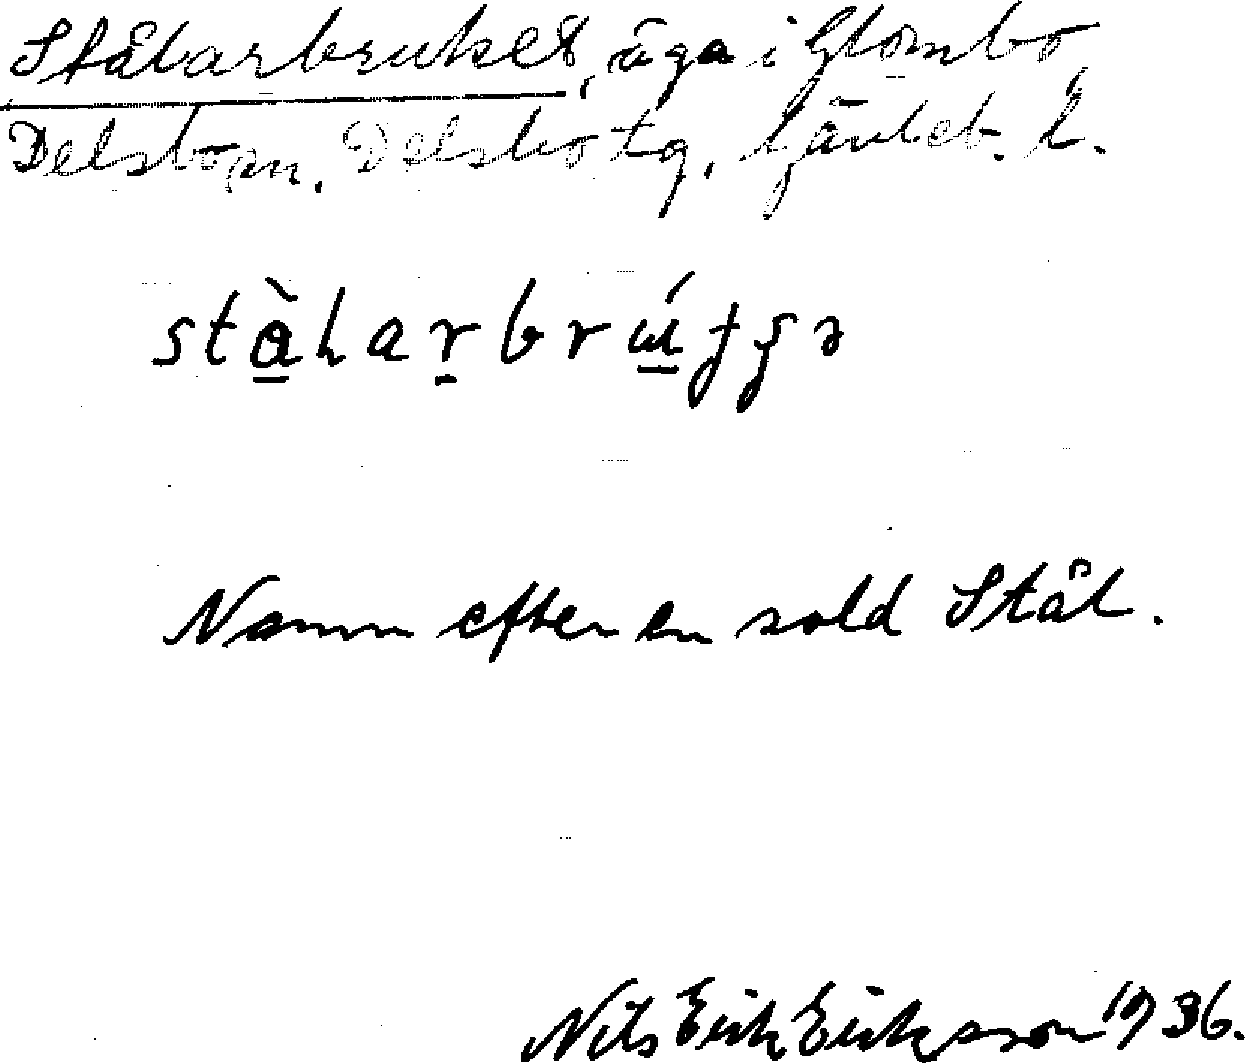 Stålarbruket, äga i Glombo
Delsbo sn, Delsbo tg, Gävleb. l.
stàlarbrúʈʂə
Namn efter en sold Stål.
Nils Erik Eriksson 1936.